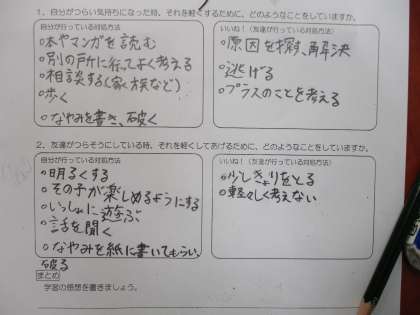 1、自分がつらい気持ちになった時、それを軽くするために、どのようなことをしていますか。
自分が行っている対処方法
○本やマンガを読む
○別の所に行ってよく考える
○相談する(家族など)
○歩く
○なやみを書き、破く
いいね!(友達が行っている対処方法)
○原因を探す、再解決
○逃げる
○プラスのことを考える
2、友達がつらそうにしている時、それを軽くしてあげるために、どのようなことをしていますか。
自分が行っている対処方法
○明るくする
○その子が楽しめるようにする
○いっしょに遊ぶ
○話を聞く
○なやみを紙に書いてもらい、
破る
いいね!(友達が行っている対処方法)
○少しきょりをとる
○軽々しく考えない
まとめ
学習の感想を書きましょう。